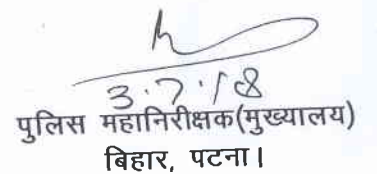 3.7.18
पुलिस महानिरीक्षक(मुख्यालय)
बिहार, पटना।